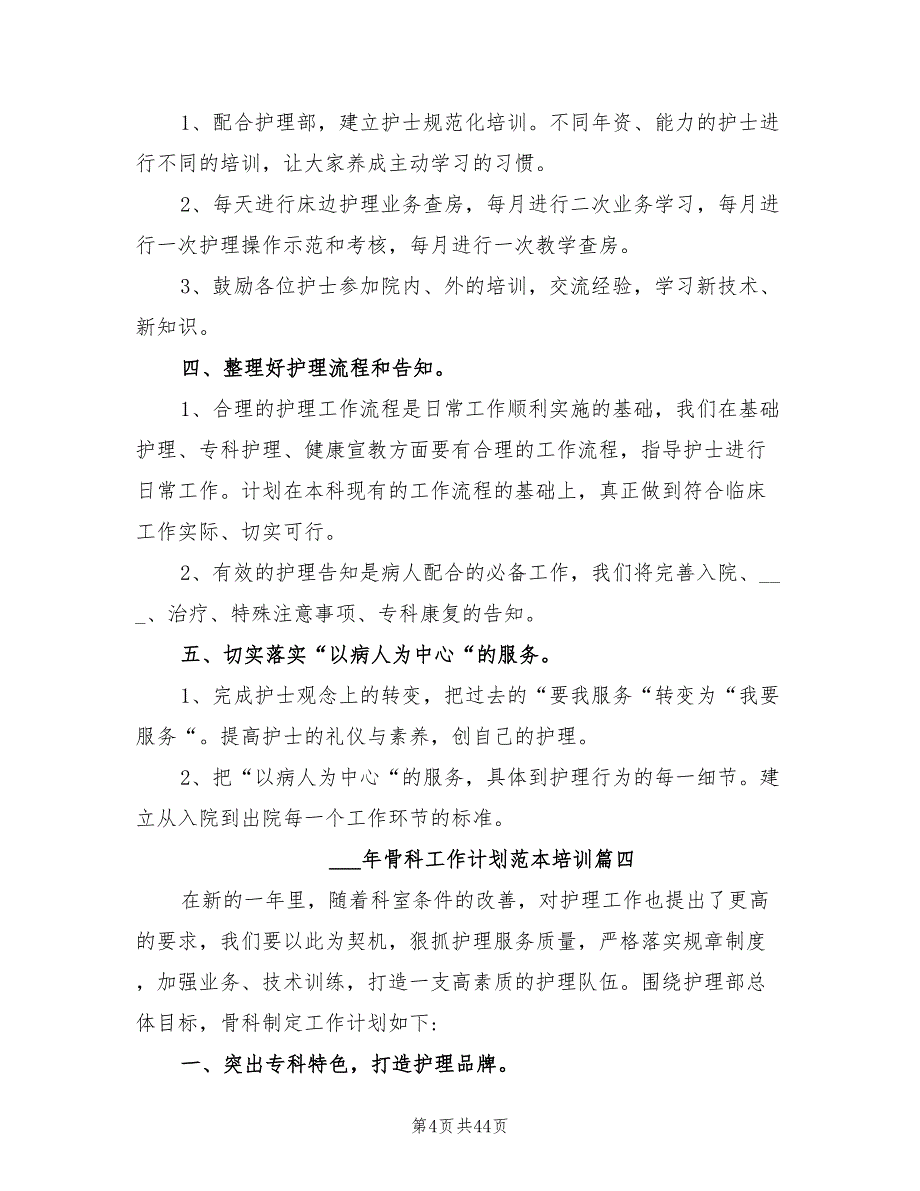 1、配合护理部，建立护士规范化培训。不同年资、能力的护士进
行不同的培训，让大家养成主动学习的习惯。
2、每天进行床边护理业务查房，每月进行二次业务学习，每月进
行一次护理操作示范和考核，每月进行一次教学查房。
3、鼓励各位护士参加院内、外的培训，交流经验，学习新技术、
新知识。
四、整理好护理流程和告知。
1、合理的护理工作流程是日常工作顺利实施的基础，我们在基础
护理、专科护理、健康宣教方面要有合理的工作流程，指导护士进行
日常工作。计划在本科现有的工作流程的基础上，真正做到符合临床
工作实际、切实可行。
2、有效的护理告知是病人配合的必备工作，我们将完善入院、__
_、治疗、特殊注意事项、专科康复的告知。
五、切实落实“以病人为中心“的服务。
1、完成护士观念上的转变，把过去的“要我服务“转变为“我要
服务“。提高护士的礼仪与素养，创自己的护理。
2、把“以病人为中心“的服务，具体到护理行为的每一细节。建
立从入院到出院每一个工作环节的标准。
___年骨科工作计划范本培训篇四
在新的一年里，随着科室条件的改善，对护理工作也提出了更高
的要求，我们要以此为契机，狠抓护理服务质量，严格落实规章制度
，加强业务、技术训练，打造一支高素质的护理队伍。围绕护理部总
体目标，骨科制定工作计划如下:
一、突出专科特色，打造护理品牌。
第4页共44页